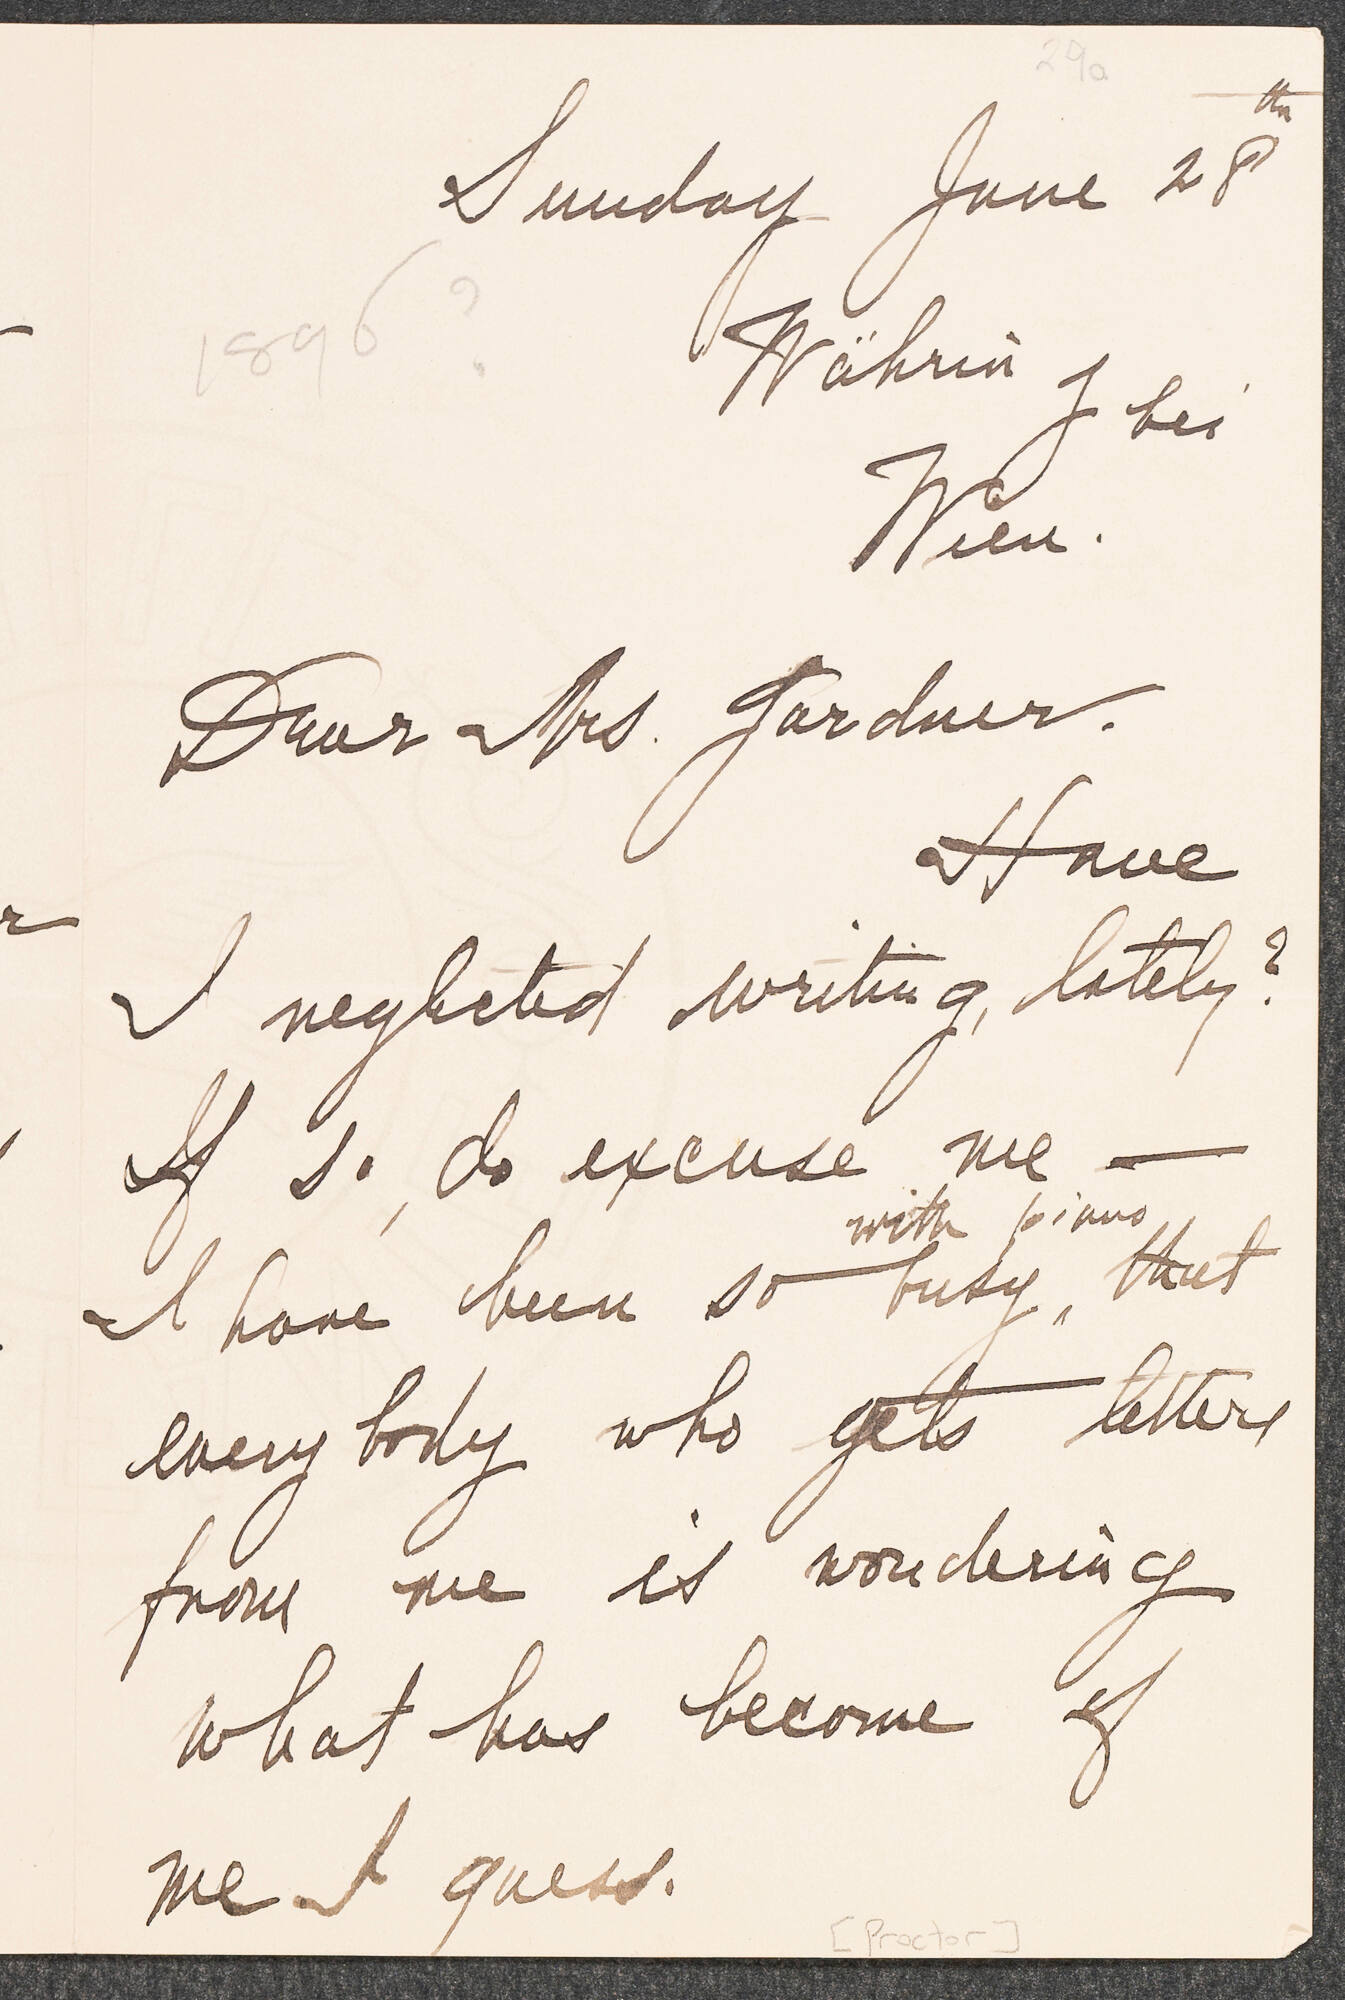 29a
Sunday June 28th
1896?
Währing bei
Wien.
Dear Mrs. Gardner.
Have
I neglected writing, lately?
If so, do excuse me —
with piano
I have been so busy, that
every body who gets letters
from me is wondering
what has become of
me I guess.
[Proctor]